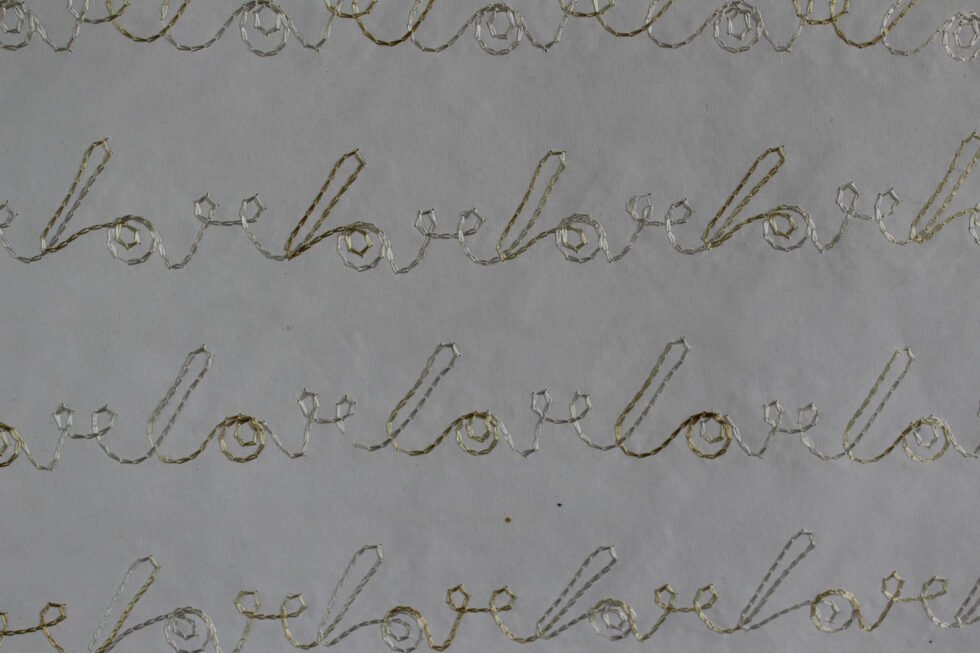 love love love
love love love love
love love love
love love love love